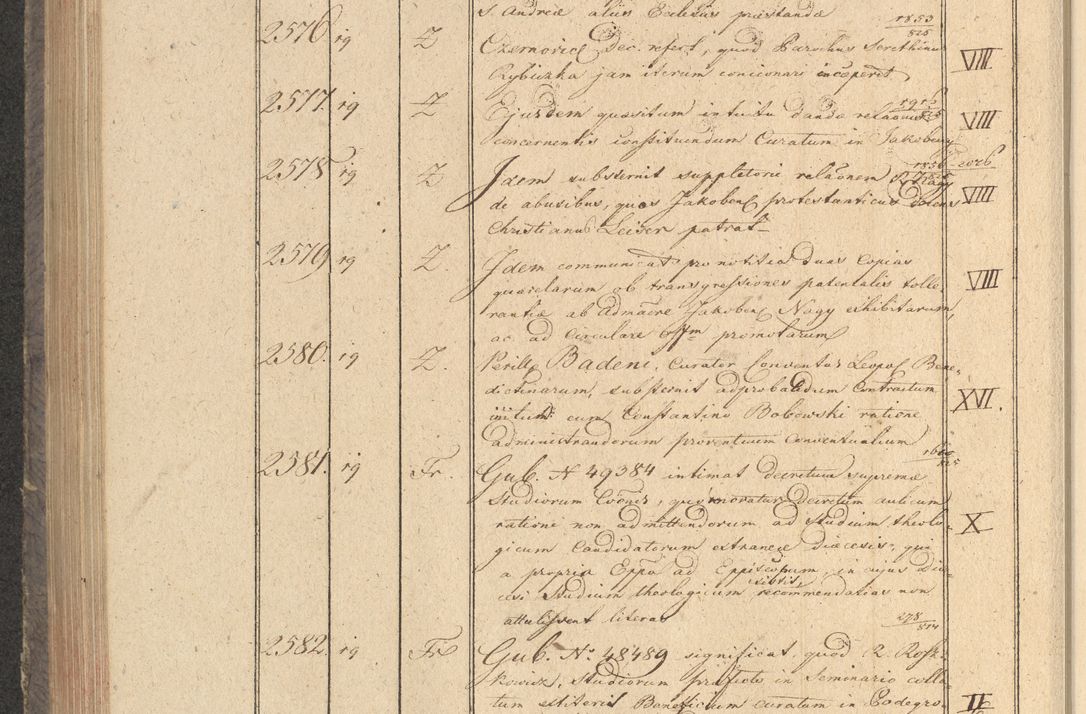 S. Andreæ aliis Ecclesiis præstanda
1853/825
2576 19 Z Czernovic Dec. refert, quod Parochus Serethinus VIII
Rybiczka jam iterum concionari inceperit
2577. 19 Z Ejusdem quæsitum intuitu dandæ relaõnis VIII
concernentis constituendum Curatum in Jakobeny
2578 19 Z Idem substernit suppletorie relaõnem
de abusibus, quos Jakobeny protestanticus docens VIII
Christianus Leiser patrat
2579 19 Z. Idem communicat pro notitia duas Copias
quærelarum ob transgressiones patentalis tolle- VIII
rantiæ ab Admãre Jakobeny Nagy exhibitarum,
ac ad Circulare promotarum
2580. 19 Z. Perill. Badeni, Curator Conventus Leopol. Bene-
dictinarum, substernit adprobandum Contractum XVI.
initum cum Constantino Bobowski ratione
administrandorum proventuum Conventualium
2581. 19 Fr. Gub. N 49384 intimat decretum supremæ
Studiorum Coõnis, quo moratur decretum aulicum
ratione non admittendorum ad Studium theolo- X
gicum Candidatorum extraneæ Diæcesis, qui
a proprio Eppõ ad Eppiscopum, in cujus Diæ-
cesi Studium theologicum recommendatias non
attulissent literas
278/824
2582. 19 Fr Gub. N. 48489 significat quod R. Rosz-
kowicz, Studiorum Præfecto in Seminario colla-
tum extiterit Beneficium curatum in Podegro- II